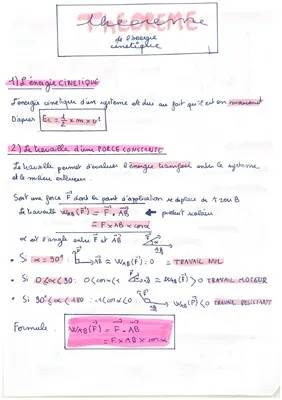 THEOREME
de l'énergie
cinétique
1) L'énergie CINETIQUE
L'énergie cinetique d'un systeme est due au fait qu'il est en mouvement
D'apres Ec = 1/2 x m x v²
2) Le travaille d'une FORCE CONSTANTE
Le travaille permet d'evaluer l'énergie transferé entre le systeme
et le milieu exterieur.
Soit une force F⃗ dont le point d'application se deplace de A vers B
Le travaille W_AB(F⃗) = F⃗ . AB⃗ ← produit scalaire
= F x AB x cos α
α est l'angle entre F⃗ et AB⃗
• Si α = 90° : F⃗ AB⃗ ⇒ W_AB(F⃗) = 0 = TRAVAIL NUL
• Si 0 < α < 90 : 0 < cos α < 1 ⇒ W_AB(F⃗) > 0 TRAVAIL MOTEUR
• Si 90° < α < 180 : -1 < cos α < 0 F⃗ W_AB(F⃗) < 0 TRAVAIL RESISTANT
Formule : W_AB(F⃗) = F⃗ . AB⃗
= F x AB x cos α